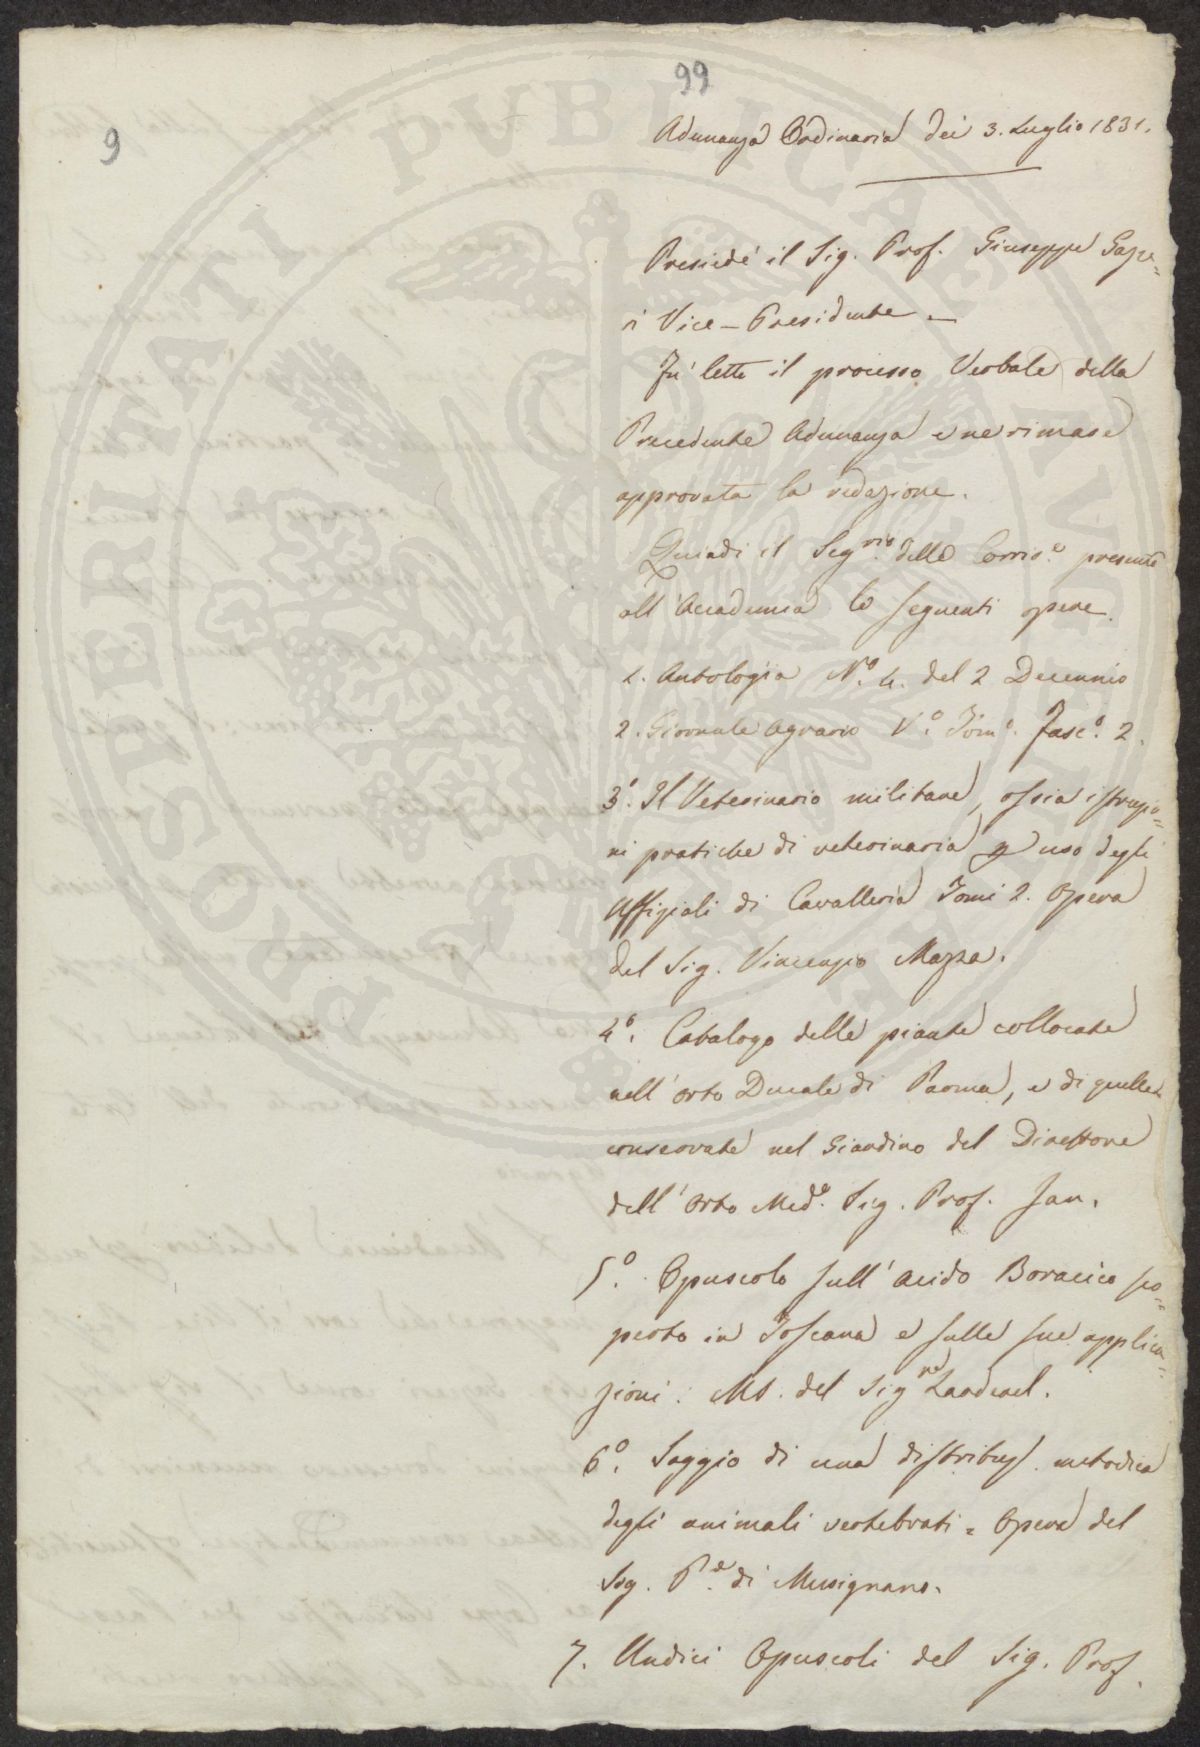 99
9
Adunanza Ordinaria dei 3. Luglio 1831.
Presiedé il Sig. Prof. Giuseppe Gaze-
ri Vice-Presidente.
Fu letto il processo Verbale della
Precedente Adunanza e ne rimase
approvata la redazione.
Quindi il Seg.rio delle Corrie. presentò
all'Accademia le seguenti opere.
1. Antologia N.o 4. del 2 Decennio
2. Giornale Agrario V.o Tom.o Fasc.o 2.
3.o Il Veterinario militare, ossia istruzio-
ni pratiche di veterinaria p uso degli
Uffiziali di Cavalleria Tomi 2. Opera
del Sig. Vincenzio Mazza.
4.o Catalogo delle piante collocate
nell'orto Ducale di Parma, e di quelle
conservate nel Giardino del Direttore
dell'orto Med.o Sig. Prof. Jan.
5.o Opuscolo sull'acido Boracico sco-
perto in Toscana e sulle sue applica-
zioni. MS. del Sig.re Larderel.
6.o Saggio di una distribuz. metodica
degli animali vertebrati = Opera del
Sig. P.e di Musignano.
7. Undici Opuscoli del Sig. Prof.
PROSPERITATI PUBLICAE AUGENDAE